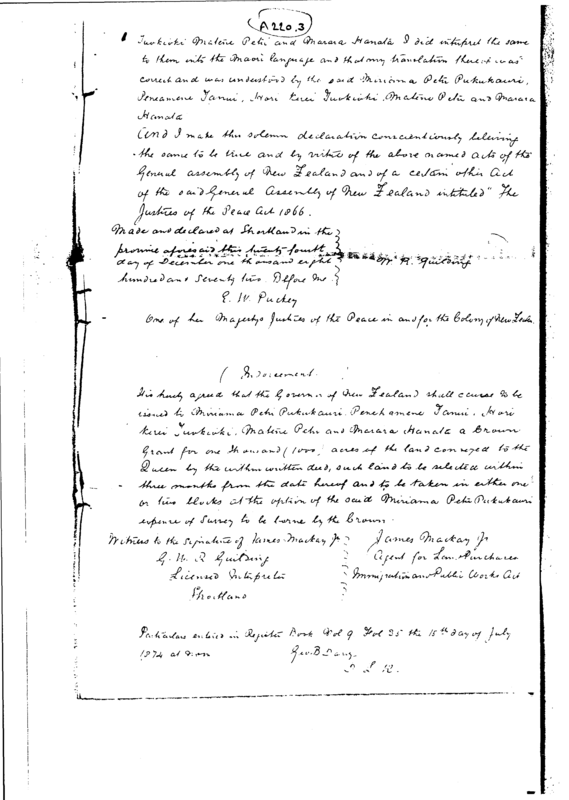 A220.3
Tuokioki Matene Petu and Marara Hanata I did interpret the same
to them into the Maori language and that my translation thereof was
correct and was understood by the said Miriama Petu Pukukauri,
Peneamene Tanui, Hori Kerei Tuokioki Matene Petu and Marara
Hanata
And I make this solemn declaration conscientiously believing
the same to be true and by virtue of the above named acts of the
General assembly of New Zealand and of a certain other Act
of the said General Assembly of New Zealand intituled "The
Justices of the Peace Act 1866.
Made and declared at Shortland in the
province aforesaid this twenty fourth
day of December one thousand eight
R. Guilding
hundred and Seventy two. Before me
E. W. Puckey
One of her Magestys Justices of the Peace in and for the Colony of New
(Indorsement.
It is hereby agreed that the Governor of New Zealand shall cause to be
issued to Miriama Petu Pukukauri. Penehamene Tanui. Hori
Kerei Tuokioki. Matene Petu and Marara Hanata a Crown
Grant for one thousand (1000) acres of the land conveyed to the
Queen by the within written deed, such land to be selected within
three months from the date hereof and to be taken in either one
or two blocks at the option of the said Miriama Petu Pukukauri
expense of Survey to be borne by the Crown.
Witness to the signature of James Mackay Jr
James Mackay Jr
G. W. R Guilding
Agent for Land Purchases
Licensed Interpreter
Immigration and Public Works Act
Shortland
Particulars entered in Register Book Vol 9 Fol 25 the 15th day of July
1874 at noon
Geo. B Davy
D L R.